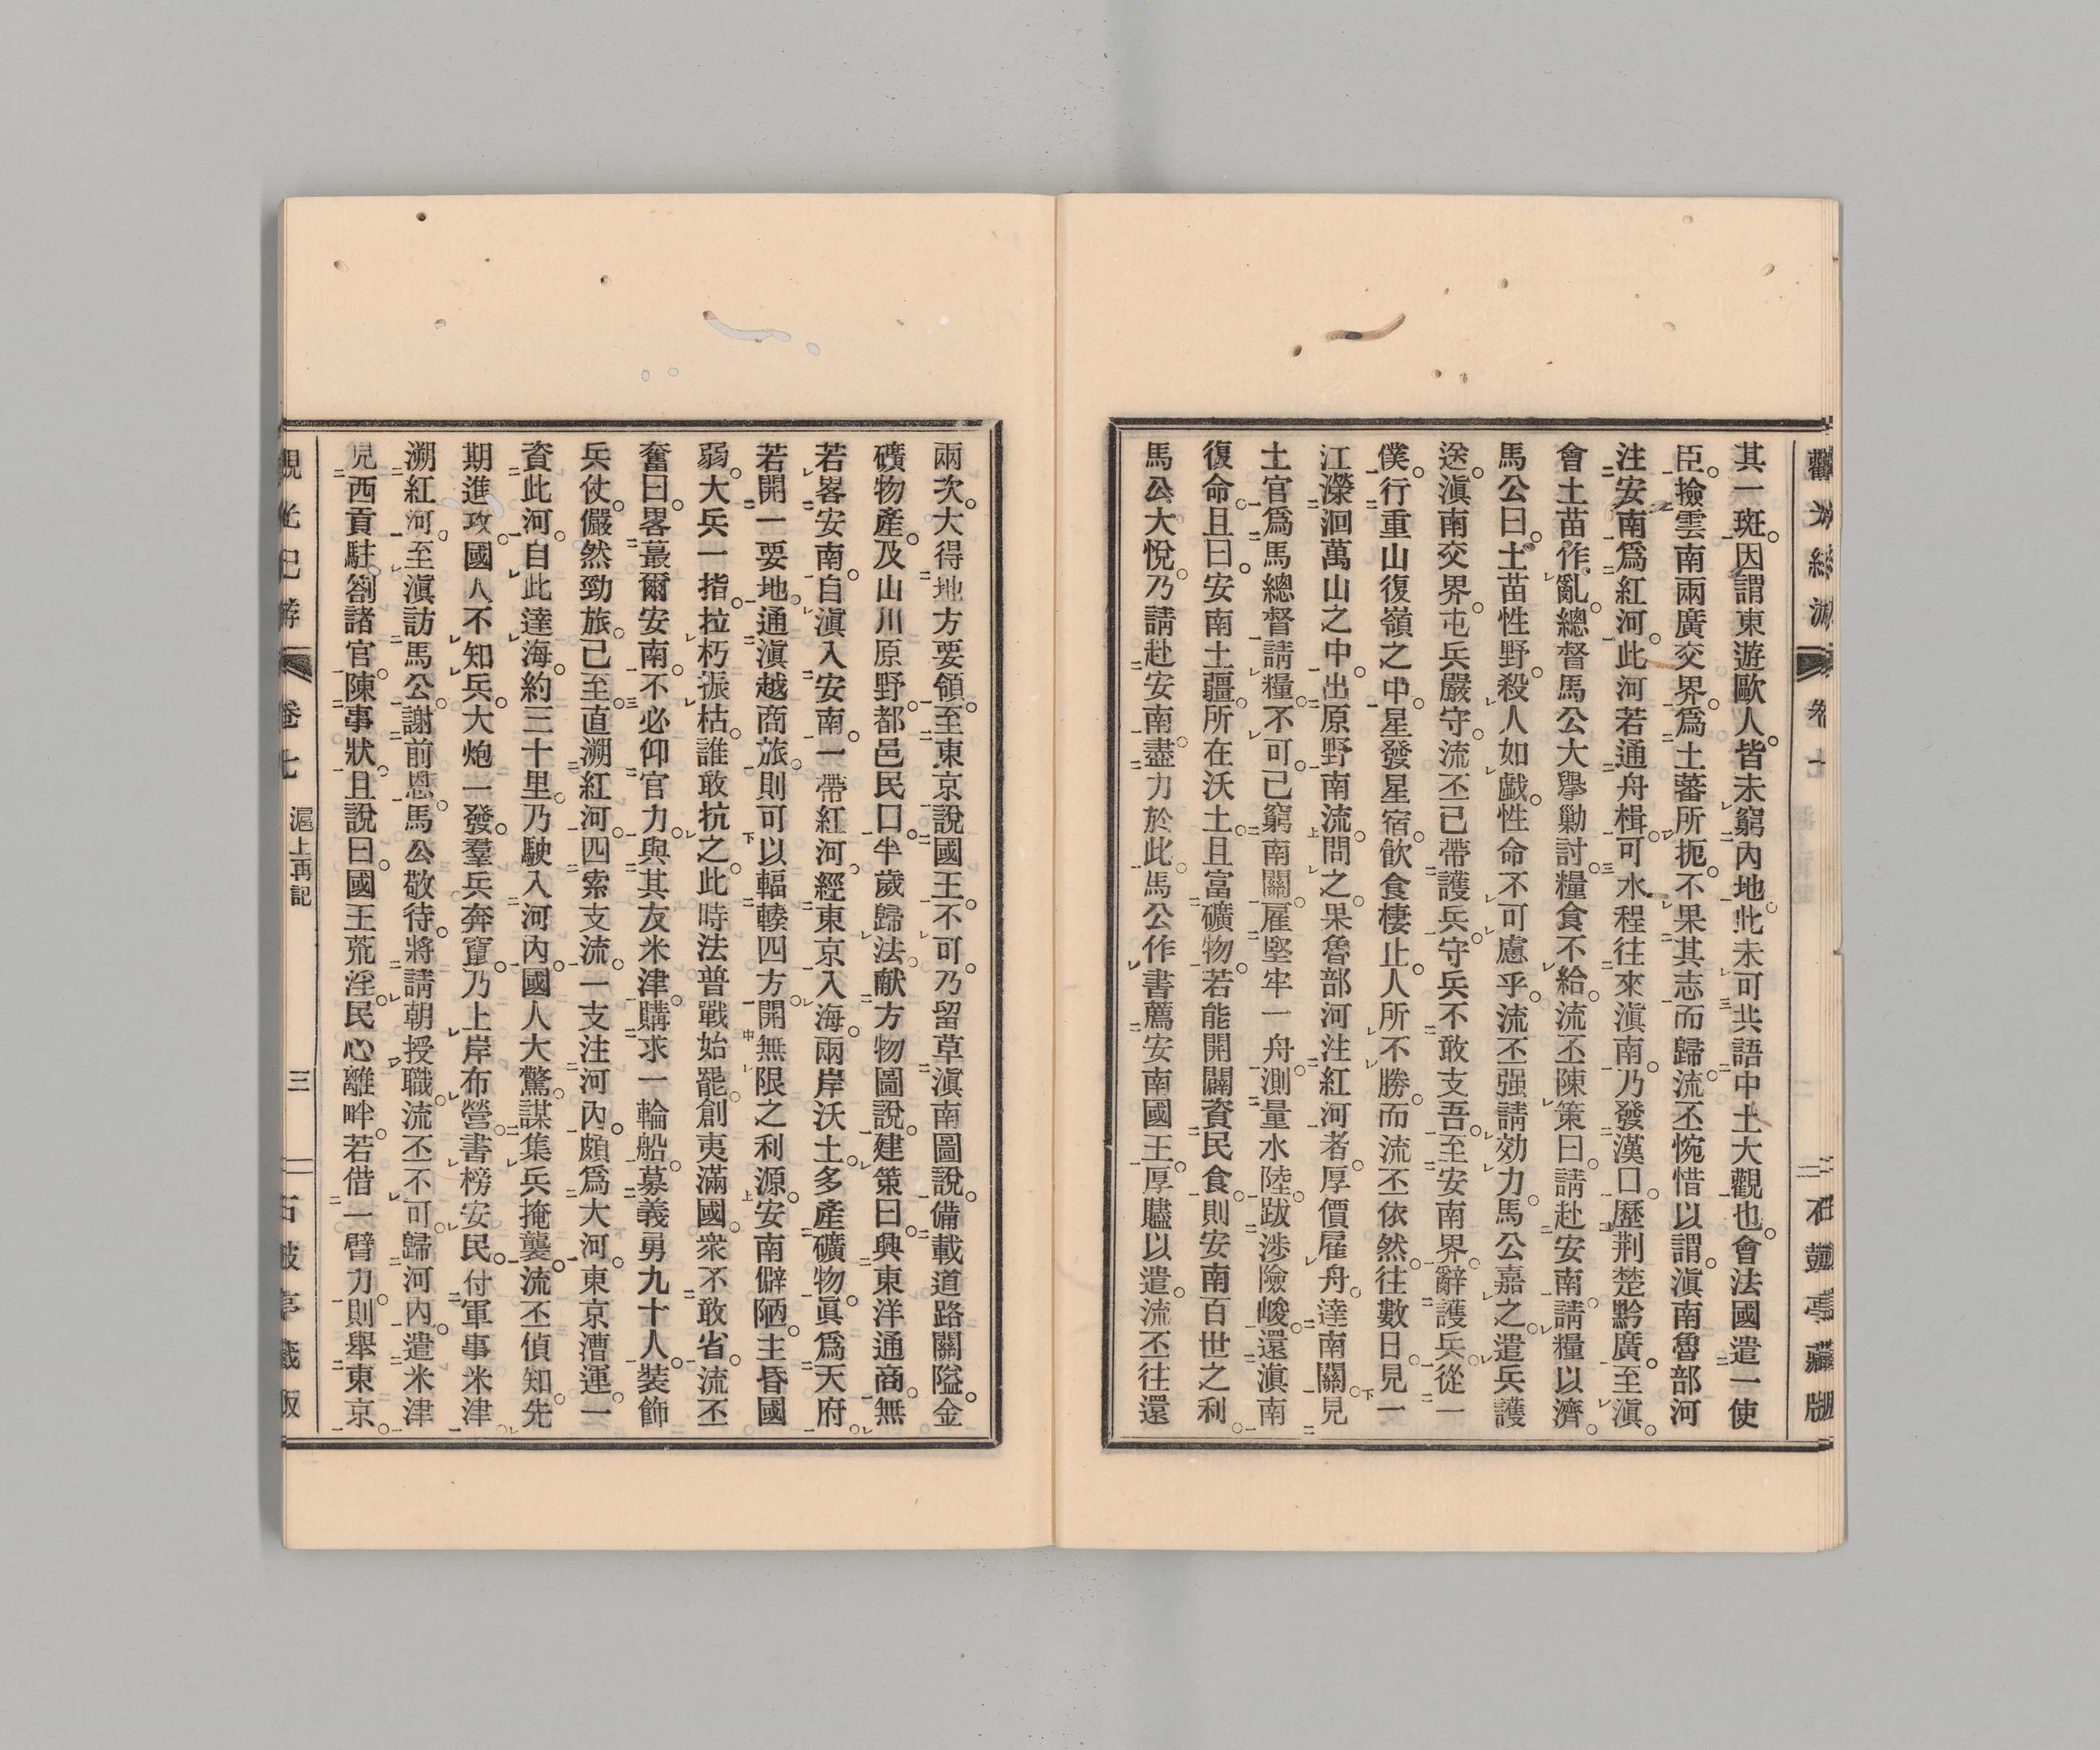 其一斑。因謂東遊歐人。皆未窮內地。此未可共語中土大觀也。會法國遣一使
臣。撿雲南兩廣交界。爲土蕃所扼。不果其志而歸。流丕惋惜以謂。滇南魯部河
注安南爲紅河。此河若通舟楫。可水程往來滇南。乃發漢口。歷荆楚黔廣。至滇。
會土苗作亂。總督馬公大擧勦討。糧食不給。流丕陳策曰。請赴安南。請糧以濟。
馬公曰。土苗性野。殺人如戯。性命不可慮乎。流丕强請効力。馬公嘉之。遣兵護
送。滇南交界。屯兵嚴守。流丕己帶護兵。守兵不敢支吾。至安南界。辭護兵。從一
僕。行重山復嶺之中。星發星宿。飮食棲止。人所不勝。而流丕依然。往數日。見一
江濚洄萬山之中。出原野南流。問之。果魯部河注紅河者。厚價雇舟。達南關。見
土官爲馬總督請糧。不可。己窮南關。雇堅牢一舟。測量水陸。跋涉險峻。還滇南
復命。且曰。安南土疆。所在沃土。且富礦物。若能開闢資民食。則安南百世之利。
馬公大悅。乃請赴安南。盡力於此。馬公作書薦安南國王。厚贐以遣。流丕往還
兩次。大得地方要領。至東京說國王。不可。乃留草滇南圖說。備載道路關隘。金
礦物產。及山川原野。都邑民口。半歲歸法。献方物圖說。建策曰。興東洋通商。無
若畧安南。自滇入安南。一帶紅河。經東京入海。兩岸沃土。多產礦物。眞爲天府。
若開一要地。通滇越商旅。則可以輻輳四方。開無限之利源。安南僻陋。主昏國
弱。大兵一指。拉朽振枯。誰敢抗之。此時法普戰始罷。創夷滿國。衆不敢省。流丕
奮曰。畧蕞爾安南。不必仰官力。與其友米津。購求一輪船。募義勇九十人。裝飾
兵仗。儼然勁旅。己至。直溯紅河。四索支流。一支注河內。頗爲大河。東京漕運。一
資此河。自此達海。約三十里。乃駛入河內。國人大驚。謀集兵掩襲。流丕偵知。先
期進攻。國人不知兵。大炮一發。羣兵奔竄。乃上岸布營。書榜安民。付軍事米津
溯紅河。至滇訪馬公。謝前恩。馬公敬待。將請朝授職。流丕不可。歸河內。遣米津
見西貢駐劄諸官。陳事狀。且說曰。國王荒淫。民心離畔。若借一臂力。則舉東京。
觀光紀游 卷七 滬上再記 三 石鼓亭藏版